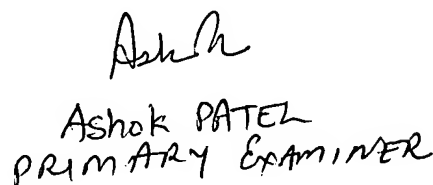 Ashok
Ashok PATEL
PRIMARY EXAMINER